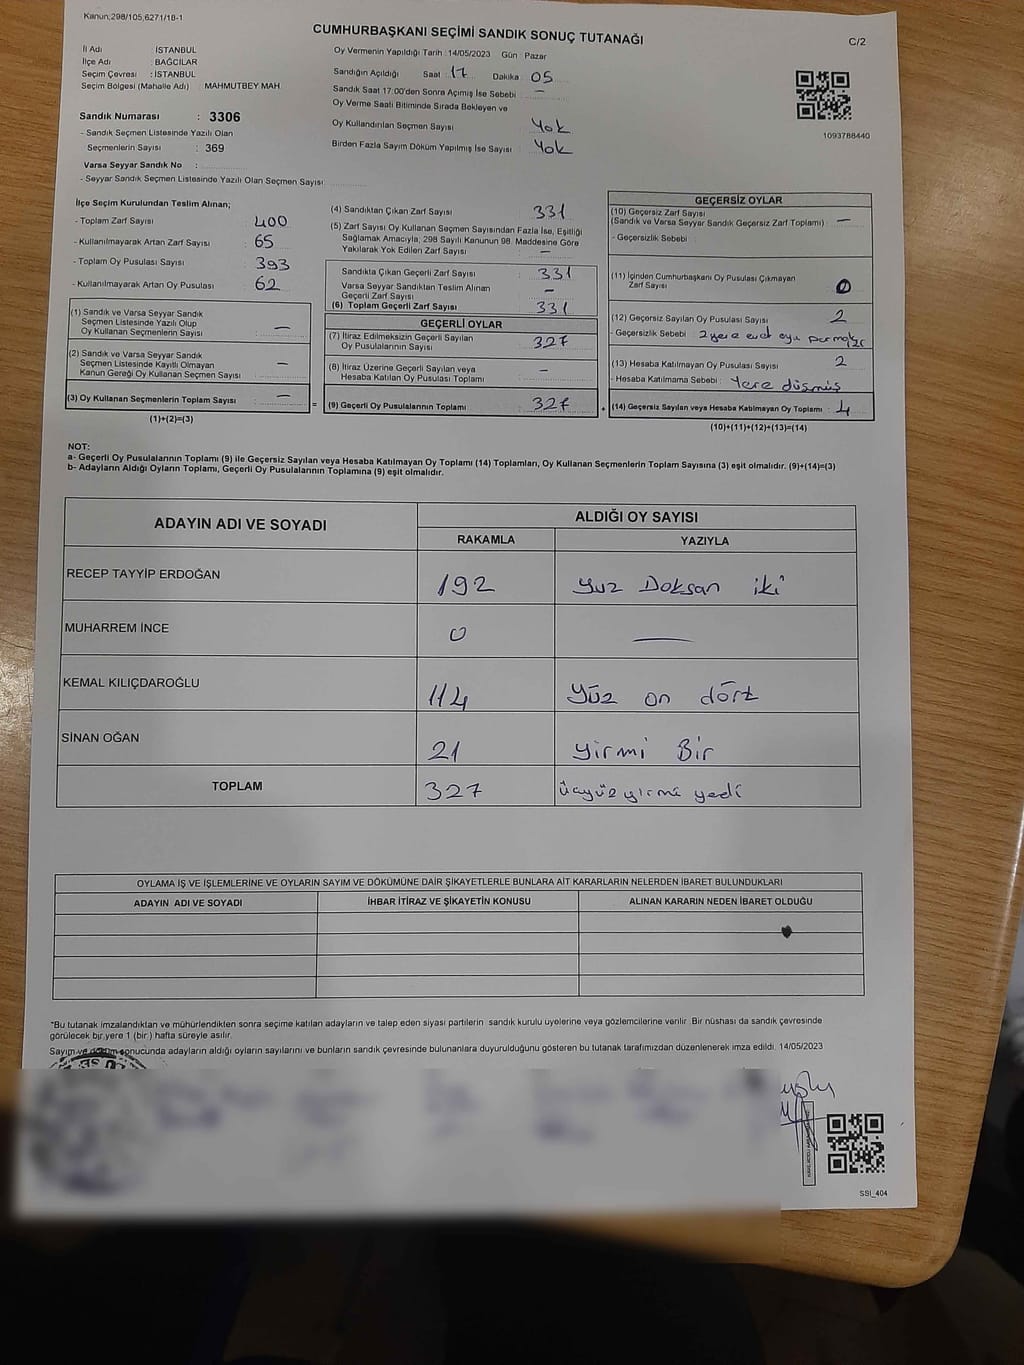 Kanun;298/105,6271/18-1
CUMHURBAŞKANI SEÇİMİ SANDIK SONUÇ TUTANAĞI
C/2
İl Adı : İSTANBUL
İlçe Adı : BAĞCILAR
Seçim Çevresi : İSTANBUL
Seçim Bölgesi (Mahalle Adı) MAHMUTBEY MAH
Sandık Numarası : 3306
- Sandık Seçmen Listesinde Yazılı Olan
Seçmenlerin Sayısı : 369
Varsa Seyyar Sandık No :
- Seyyar Sandık Seçmen Listesinde Yazılı Olan Seçmen Sayısı:
Oy Vermenin Yapıldığı Tarih : 14/05/2023 Gün : Pazar
Sandığın Açıldığı Saat 17 Dakika 05
Sandık Saat 17:00'den Sonra Açımış İse Sebebi : -
Oy Verme Saati Bitiminde Sırada Bekleyen ve
Oy Kullandırılan Seçmen Sayısı : Yok
Birden Fazla Sayım Döküm Yapılmış İse Sayısı : Yok
1093788440
İlçe Seçim Kurulundan Teslim Alınan;
- Toplam Zarf Sayısı : 400
- Kullanılmayarak Artan Zarf Sayısı : 65
- Toplam Oy Pusulası Sayısı : 393
- Kullanılmayarak Artan Oy Pusulası : 62
(1) Sandık ve Varsa Seyyar Sandık
Seçmen Listesinde Yazılı Olup
Oy Kullanan Seçmenlerin Sayısı : -
(2) Sandık ve Varsa Seyyar Sandık
Seçmen Listesinde Kayıtlı Olmayan
Kanun Gereği Oy Kullanan Seçmen Sayısı : -
(3) Oy Kullanan Seçmenlerin Toplam Sayısı : -
(1)+(2)=(3)
(4) Sandıktan Çıkan Zarf Sayısı : 331
(5) Zarf Sayısı Oy Kullanan Seçmen Sayısından Fazla İse, Eşitliği
Sağlamak Amacıyla, 298 Sayılı Kanunun 98. Maddesine Göre
Yakılarak Yok Edilen Zarf Sayısı : -
Sandıkta Çıkan Geçerli Zarf Sayısı : 331
Varsa Seyyar Sandıktan Teslim Alınan
Geçerli Zarf Sayısı : -
(6) Toplam Geçerli Zarf Sayısı : 331
GEÇERLİ OYLAR
(7) İtiraz Edilmeksizin Geçerli Sayılan
Oy Pusulalarının Sayısı : 327
(8) İtiraz Üzerine Geçerli Sayılan veya
Hesaba Katılan Oy Pusulası Toplamı : -
= (9) Geçerli Oy Pusulalarının Toplamı : 327
GEÇERSİZ OYLAR
(10) Geçersiz Zarf Sayısı
(Sandık ve Varsa Seyyar Sandık Geçersiz Zarf Toplamı) : -
- Geçersizlik Sebebi :
(11) İçinden Cumhurbaşkanı Oy Pusulası Çıkmayan
Zarf Sayısı : 0
(12) Geçersiz Sayılan Oy Pusulası Sayısı : 2
- Geçersizlik Sebebi : 2 yere evet oyu
(13) Hesaba Katılmayan Oy Pusulası Sayısı : 2
- Hesaba Katılmama Sebebi : Yere düşmüş
+ (14) Geçersiz Sayılan veya Hesaba Katılmayan Oy Toplamı : 4
(10)+(11)+(12)+(13)=(14)
NOT:
a- Geçerli Oy Pusulalarının Toplamı (9) ile Geçersiz Sayılan veya Hesaba Katılmayan Oy Toplamı (14) Toplamları, Oy Kullanan Seçmenlerin Toplam Sayısına (3) eşit olmalıdır. (9)+(14)=(3)
b- Adayların Aldığı Oyların Toplamı, Geçerli Oy Pusulalarının Toplamına (9) eşit olmalıdır.
ADAYIN ADI VE SOYADI ALDIĞI OY SAYISI
RAKAMLA YAZIYLA
RECEP TAYYİP ERDOĞAN 192 Yuz Doksan iki
MUHARREM İNCE 0 —
KEMAL KILIÇDAROĞLU 114 Yüz on dört
SİNAN OĞAN 21 yirmi Bir
TOPLAM 327 üçyüz yirmi yedi
OYLAMA İŞ VE İŞLEMLERİNE VE OYLARIN SAYIM VE DÖKÜMÜNE DAİR ŞİKAYETLERLE BUNLARA AİT KARARLARIN NELERDEN İBARET BULUNDUKLARI
ADAYIN ADI VE SOYADI İHBAR İTİRAZ VE ŞİKAYETİN KONUSU ALINAN KARARIN NEDEN İBARET OLDUĞU
*Bu tutanak imzalandıktan ve mühürlendikten sonra seçime katılan adayların ve talep eden siyasi partilerin sandık kurulu üyelerine veya gözlemcilerine verilir. Bir nüshası da sandık çevresinde
görülecek bir yere 1 (bir) hafta süreyle asılır.
Sayım ve döküm sonucunda adayların aldığı oyların sayılarını ve bunların sandık çevresinde bulunanlara duyurulduğunu gösteren bu tutanak tarafımızdan düzenlenerek imza edildi. 14/05/2023
SSI_404